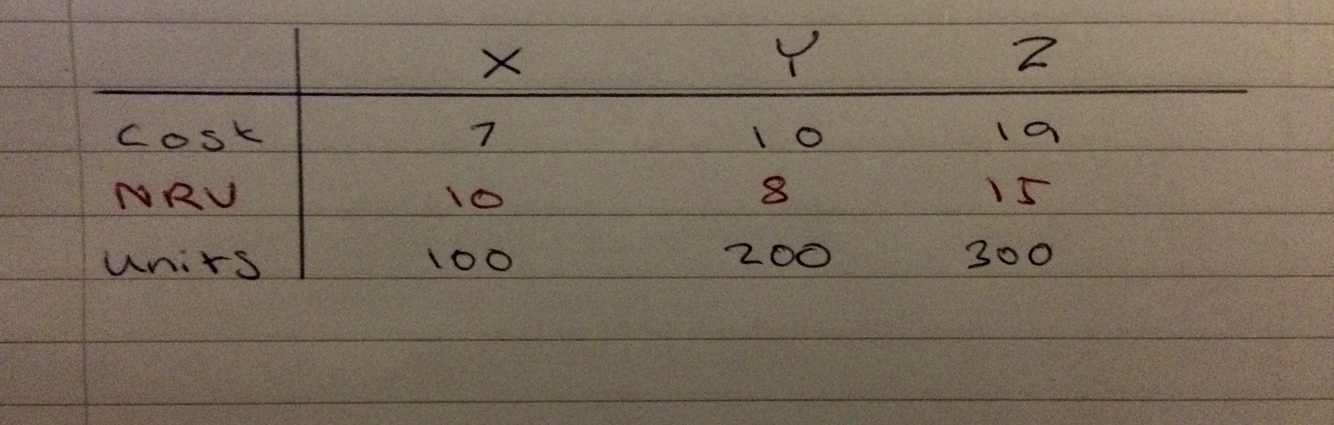 X Y Z
Cost 7 10 19
NRV 10 8 15
Units 100 200 300